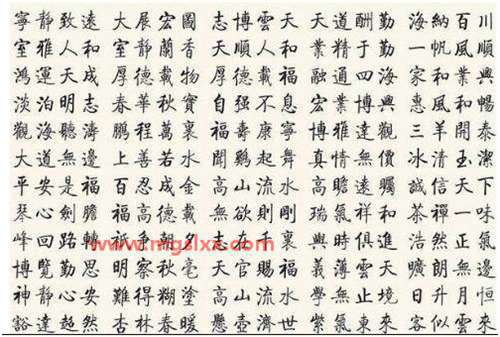 寧靜致遠 大展宏圖 志博雲天 天道酬勤 海納百川
室雅人和 室靜蘭香 天順人和 業精于勤 一帆風順
鴻運天成 厚德載物 厚德載福 融通四海 家和業興
淡泊明志 春華秋實 自强不息 宏業博興 惠風和暢
觀海聽濤 鵬程萬裏 福壽康寧 博雅達觀 三羊開泰
大道無邊 上善若水 聞鷄起舞 真情無價 冰清玉潔
平安是福 百忍成金 高山流水 高瞻遠矚 誠信天下
琴心劍膽 福高德載 無欲則剛 瑞氣祥和 茶禪一味
峰回路轉 爭朝夕 志在千裏 與時俱進 浩然正氣
www.mgslxx.com
博覽勤思 明察秋毫 天官賜福 義薄雲天 曠朗無邊
神靜心安 難得糊塗 高山流水 學無止境 日升月恒
豁達超然 杏林春暖 懸壺濟世 紫氣東來 客似雲來